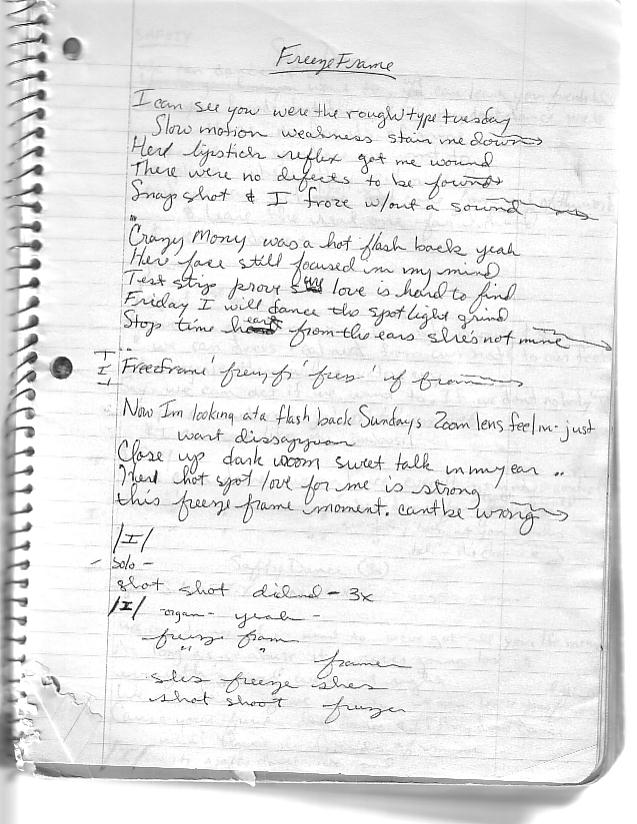 Freeze Frame
I can see you were the rough type tuesday
Slow motion weakness stain me down
Herd lipstick reflex got me wound
There were no defects to be found
Snap shot & I froze w/out a sound
Crazy Mony was a hot flash back yeah
Her face still focused in my mind
Test strip prove love is hard to find
Friday I will dance the spot light grind
Stop time from the ears she's not mine
Freezeframe
Now Im looking at a flash back Sundays Zoom lens feelin - just
wont
Close up dark room sweet talk in my ear ..
Herd hot spot love for me is strong
this freeze frame moment. cant be wrong
/I/
- Solo -
shot shot - 3x
/I/ - organ - yeah -
freeze fram
" "
freeze shes
shot shoot